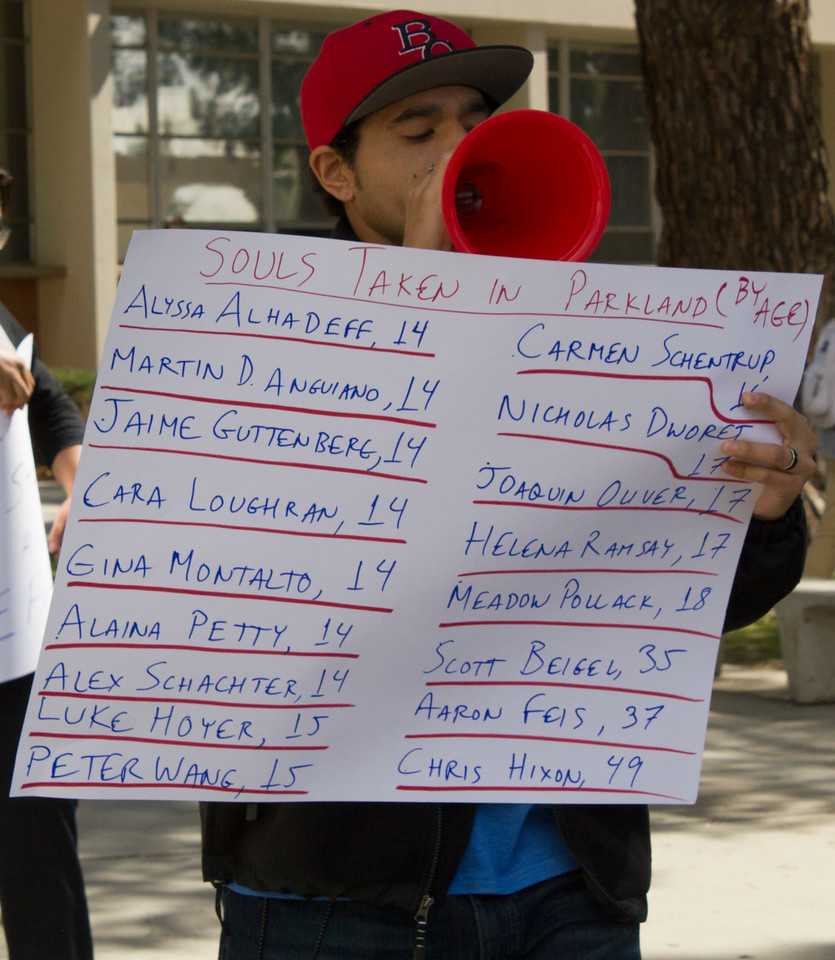 SOULS TAKEN IN PARKLAND (BY AGE)
ALYSSA ALHADEFF, 14
MARTIN D. ANGUIANO, 14
JAIME GUTTENBERG, 14
CARA LOUGHRAN, 14
GINA MONTALTO, 14
ALAINA PETTY, 14
ALEX SCHACHTER, 14
LUKE HOYER, 15
PETER WANG, 15
CARMEN SCHENTRUP,
NICHOLAS DWORET
17
JOAQUIN OLIVER, 17
HELENA RAMSAY, 17
MEADOW POLLACK, 18
SCOTT BEIGEL, 35
AARON FEIS, 37
CHRIS HIXON, 49